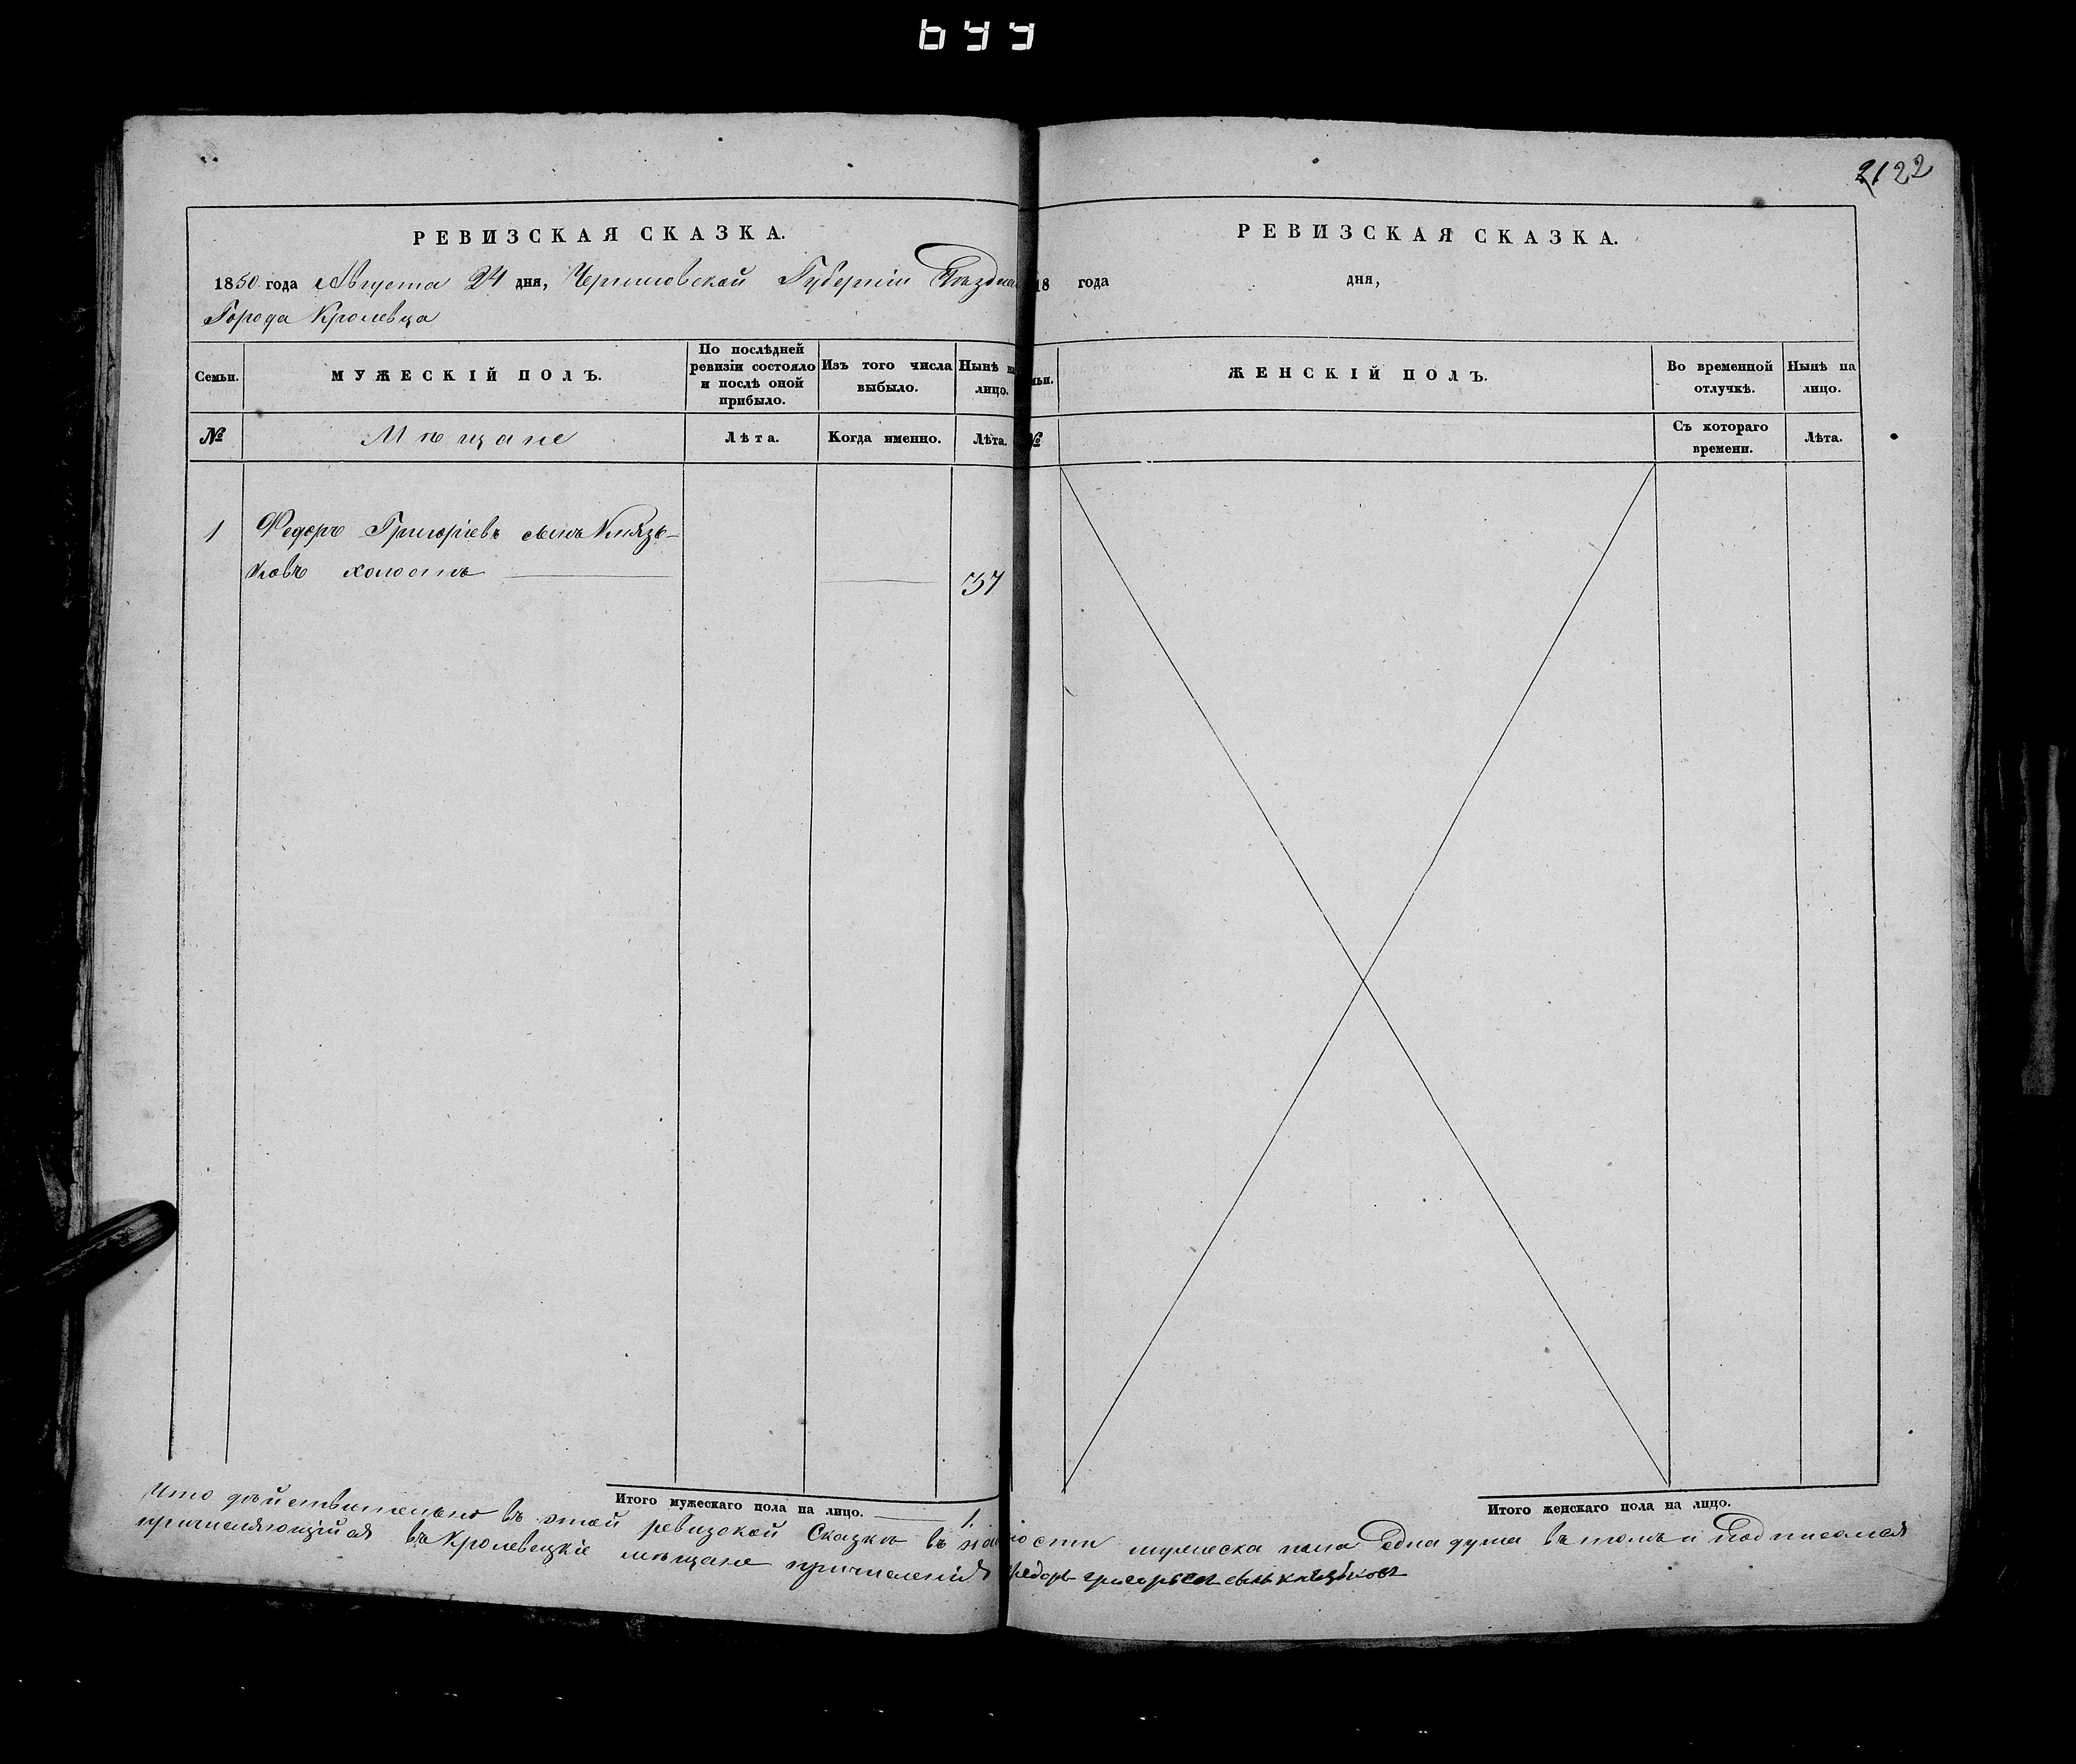 644
2122
РЕВИЗСКАЯ СКАЗКА.
1850 года Августа 24 дня, Черниговской Губерніи Уѣздна
Города Кролевца
Семьи.
МУЖЕСКІЙ ПОЛЪ.
По послѣдней ревизіи состояло и послѣ оной прибыло.
Изъ того числа выбыло.
Нынѣ на лицо.
№
Мѣщане
Лѣта.
Когда именно.
Лѣта.
1
Федоръ Григоріевъ сынъ Князь-
ковъ холостъ
37
Итого мужескаго пола на лицо. 1.
РЕВИЗСКАЯ СКАЗКА.
18 года дня,
мьи.
ЖЕНСКІЙ ПОЛЪ.
Во временной отлучкѣ.
Нынѣ на лицо.
№
Съ котораго времени.
Лѣта.
Итого женскаго пола на лицо.
Что дѣйствительно въ этой ревизской Сказкѣ въ ности мужеска пола одна душа въ томъ и подписался
причисляющійся въ Кролевецкіе мѣщане Федоръ григорьевъ сынъ князьковъ